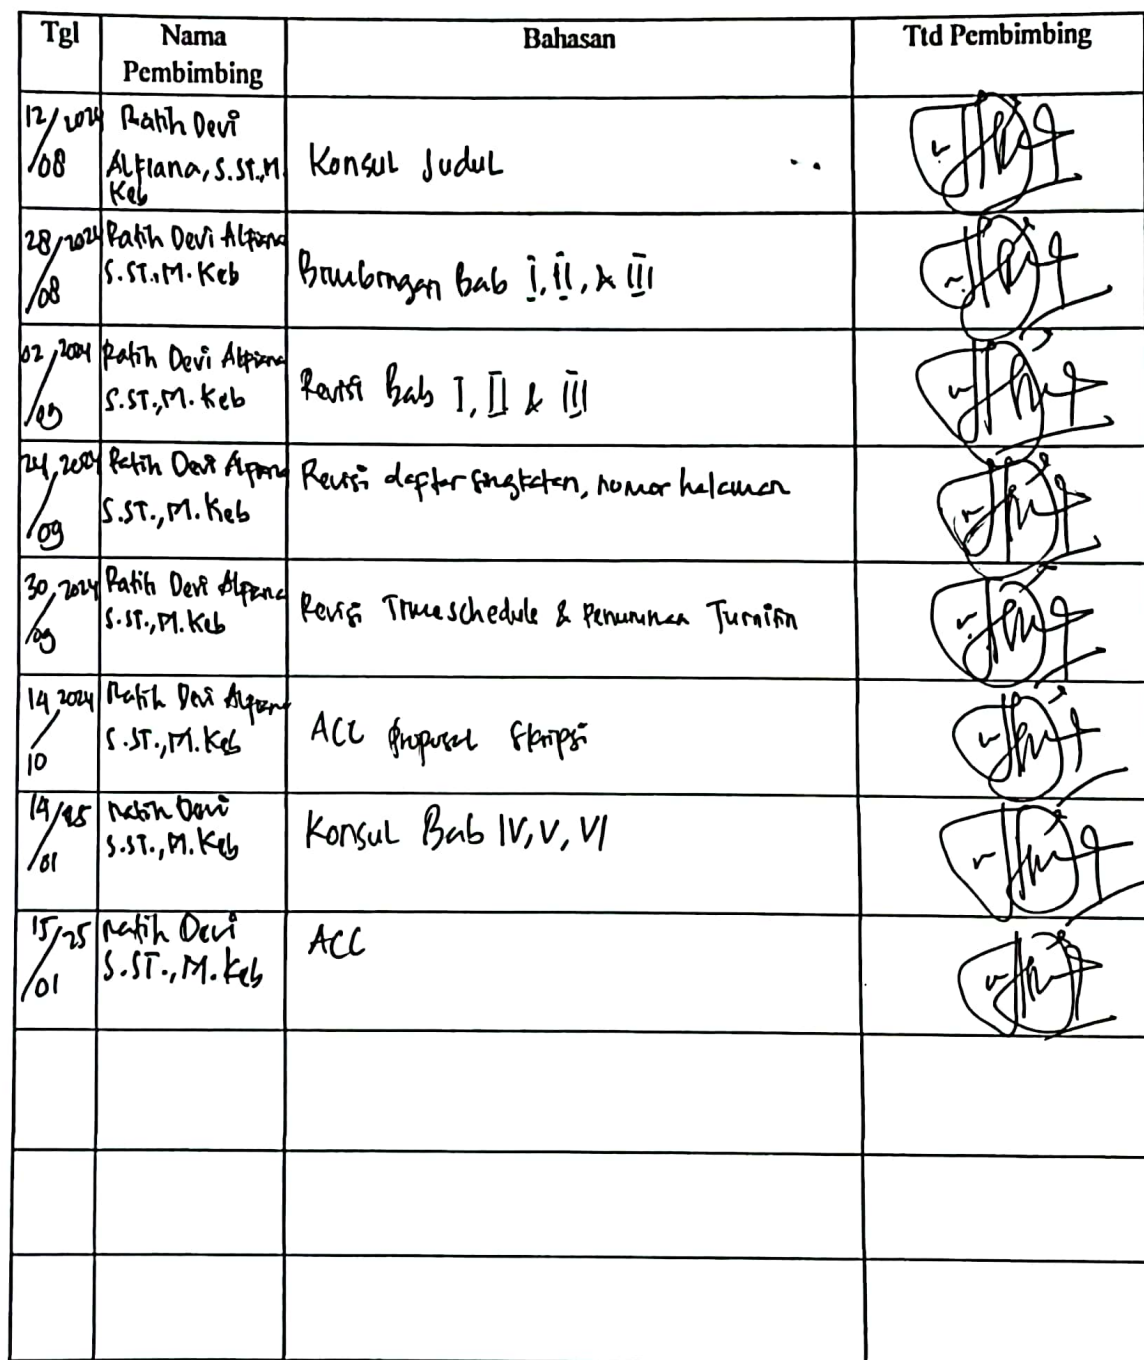 Tgl Nama Pembimbing Bahasan Ttd Pembimbing
12/08 2024 Ratih Devi Alfiana, S.ST.,M. Keb Konsul Judul
28/08 2024 Ratih Devi Alfiana S.ST.,M. Keb Bimbingan Bab I, II, & III
02/09 2024 Ratih Devi Alfiana S.ST.,M. Keb Revisi Bab I, II & III
24/09 2024 Ratih Devi Alfiana S.ST.,M. Keb Revisi daftar singkatan, nomor halaman
30/09 2024 Ratih Devi Alfiana S.ST.,M. Keb Revisi Timeschedule & Penurunan Turnitin
14/10 2024 Ratih Devi Alfiana S.ST.,M. Keb ACC proposal Skripsi
14/01 25 Ratih Devi S.ST.,M. Keb Konsul Bab IV, V, VI
15/01 25 Ratih Devi S.ST.,M. Keb ACC